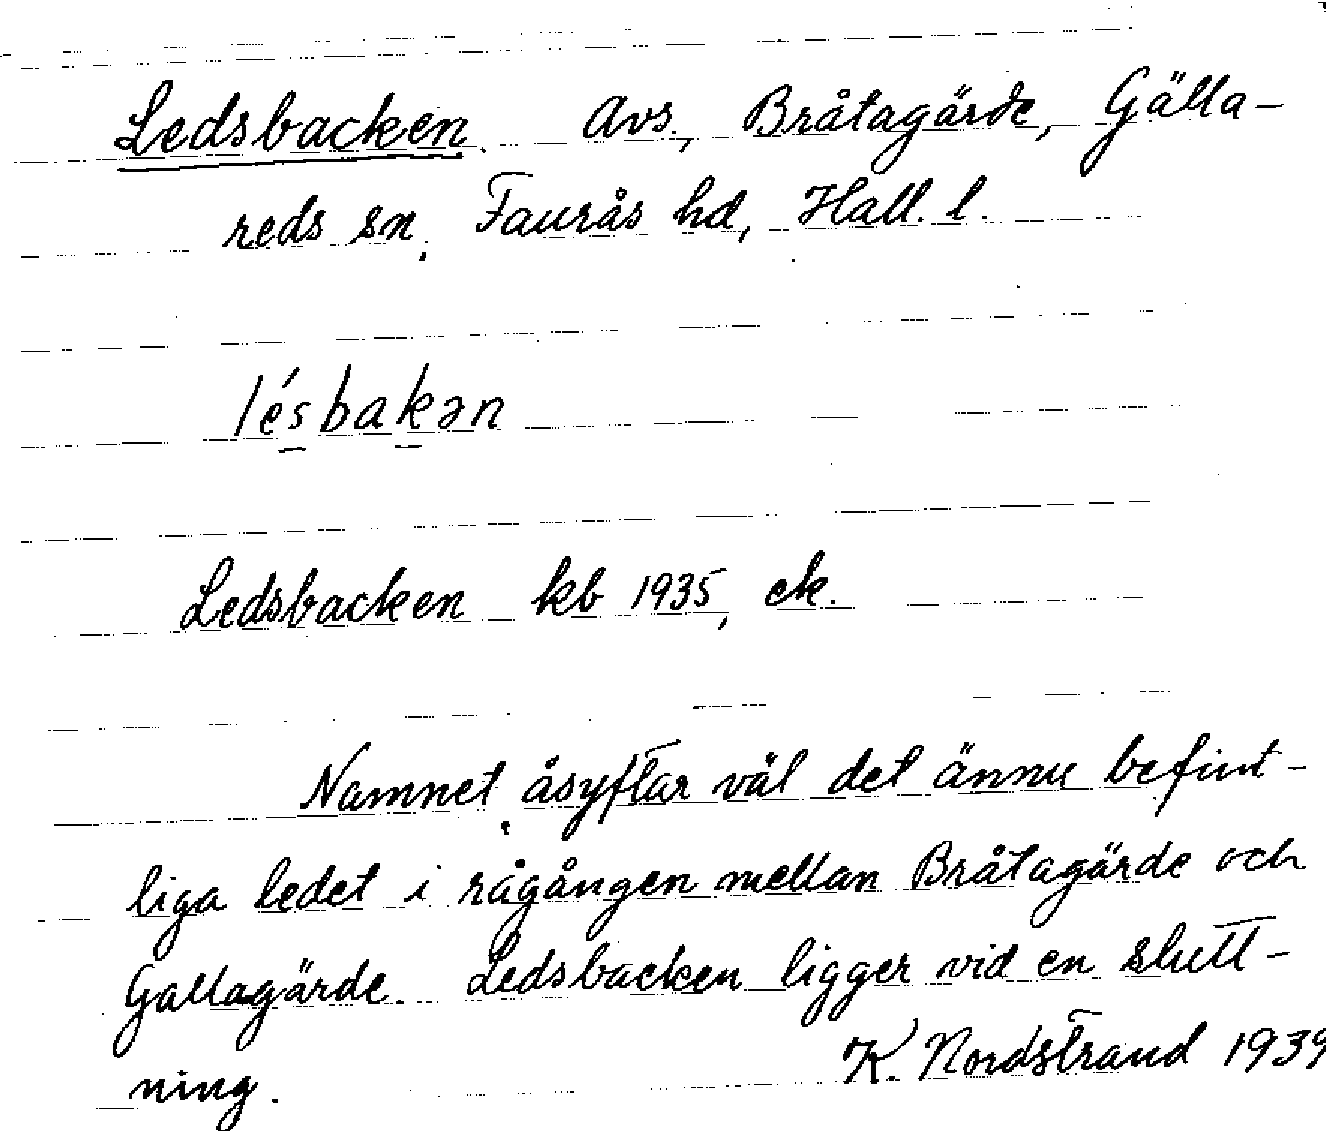 Ledsbacken. Avs., Bråtagärde, Gälla-
reds sn, Faurås hd, Hall. l.
lésbakən
Ledsbacken kb 1935, ek.
Namnet åsyftar väl det ännu befint-
liga ledet i rågången mellan Bråtagärde och
Gallagärde. Ledsbacken ligger vid en slutt-
ning.
K. Nordstrand 1939